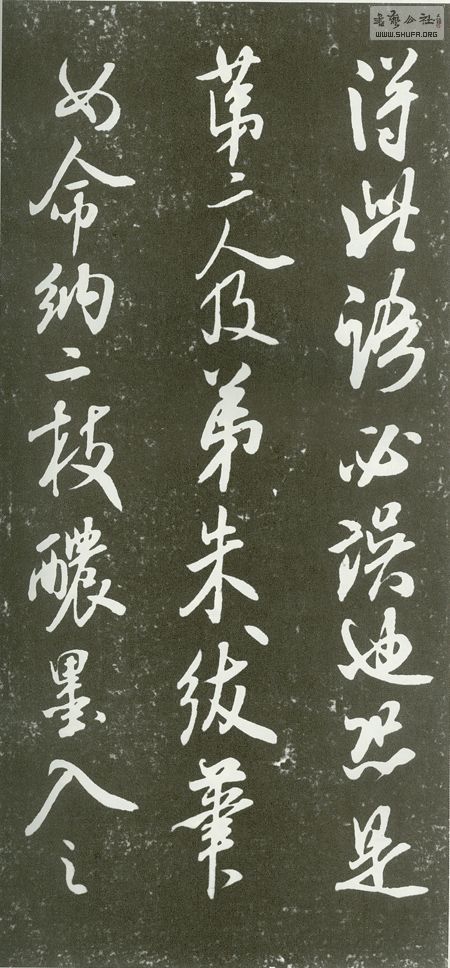 書藝公社
WWW.SHUFA.ORG
得此語必誤迪恐是
苐二人及弟朱紱筆
如命納二枝醲墨入之